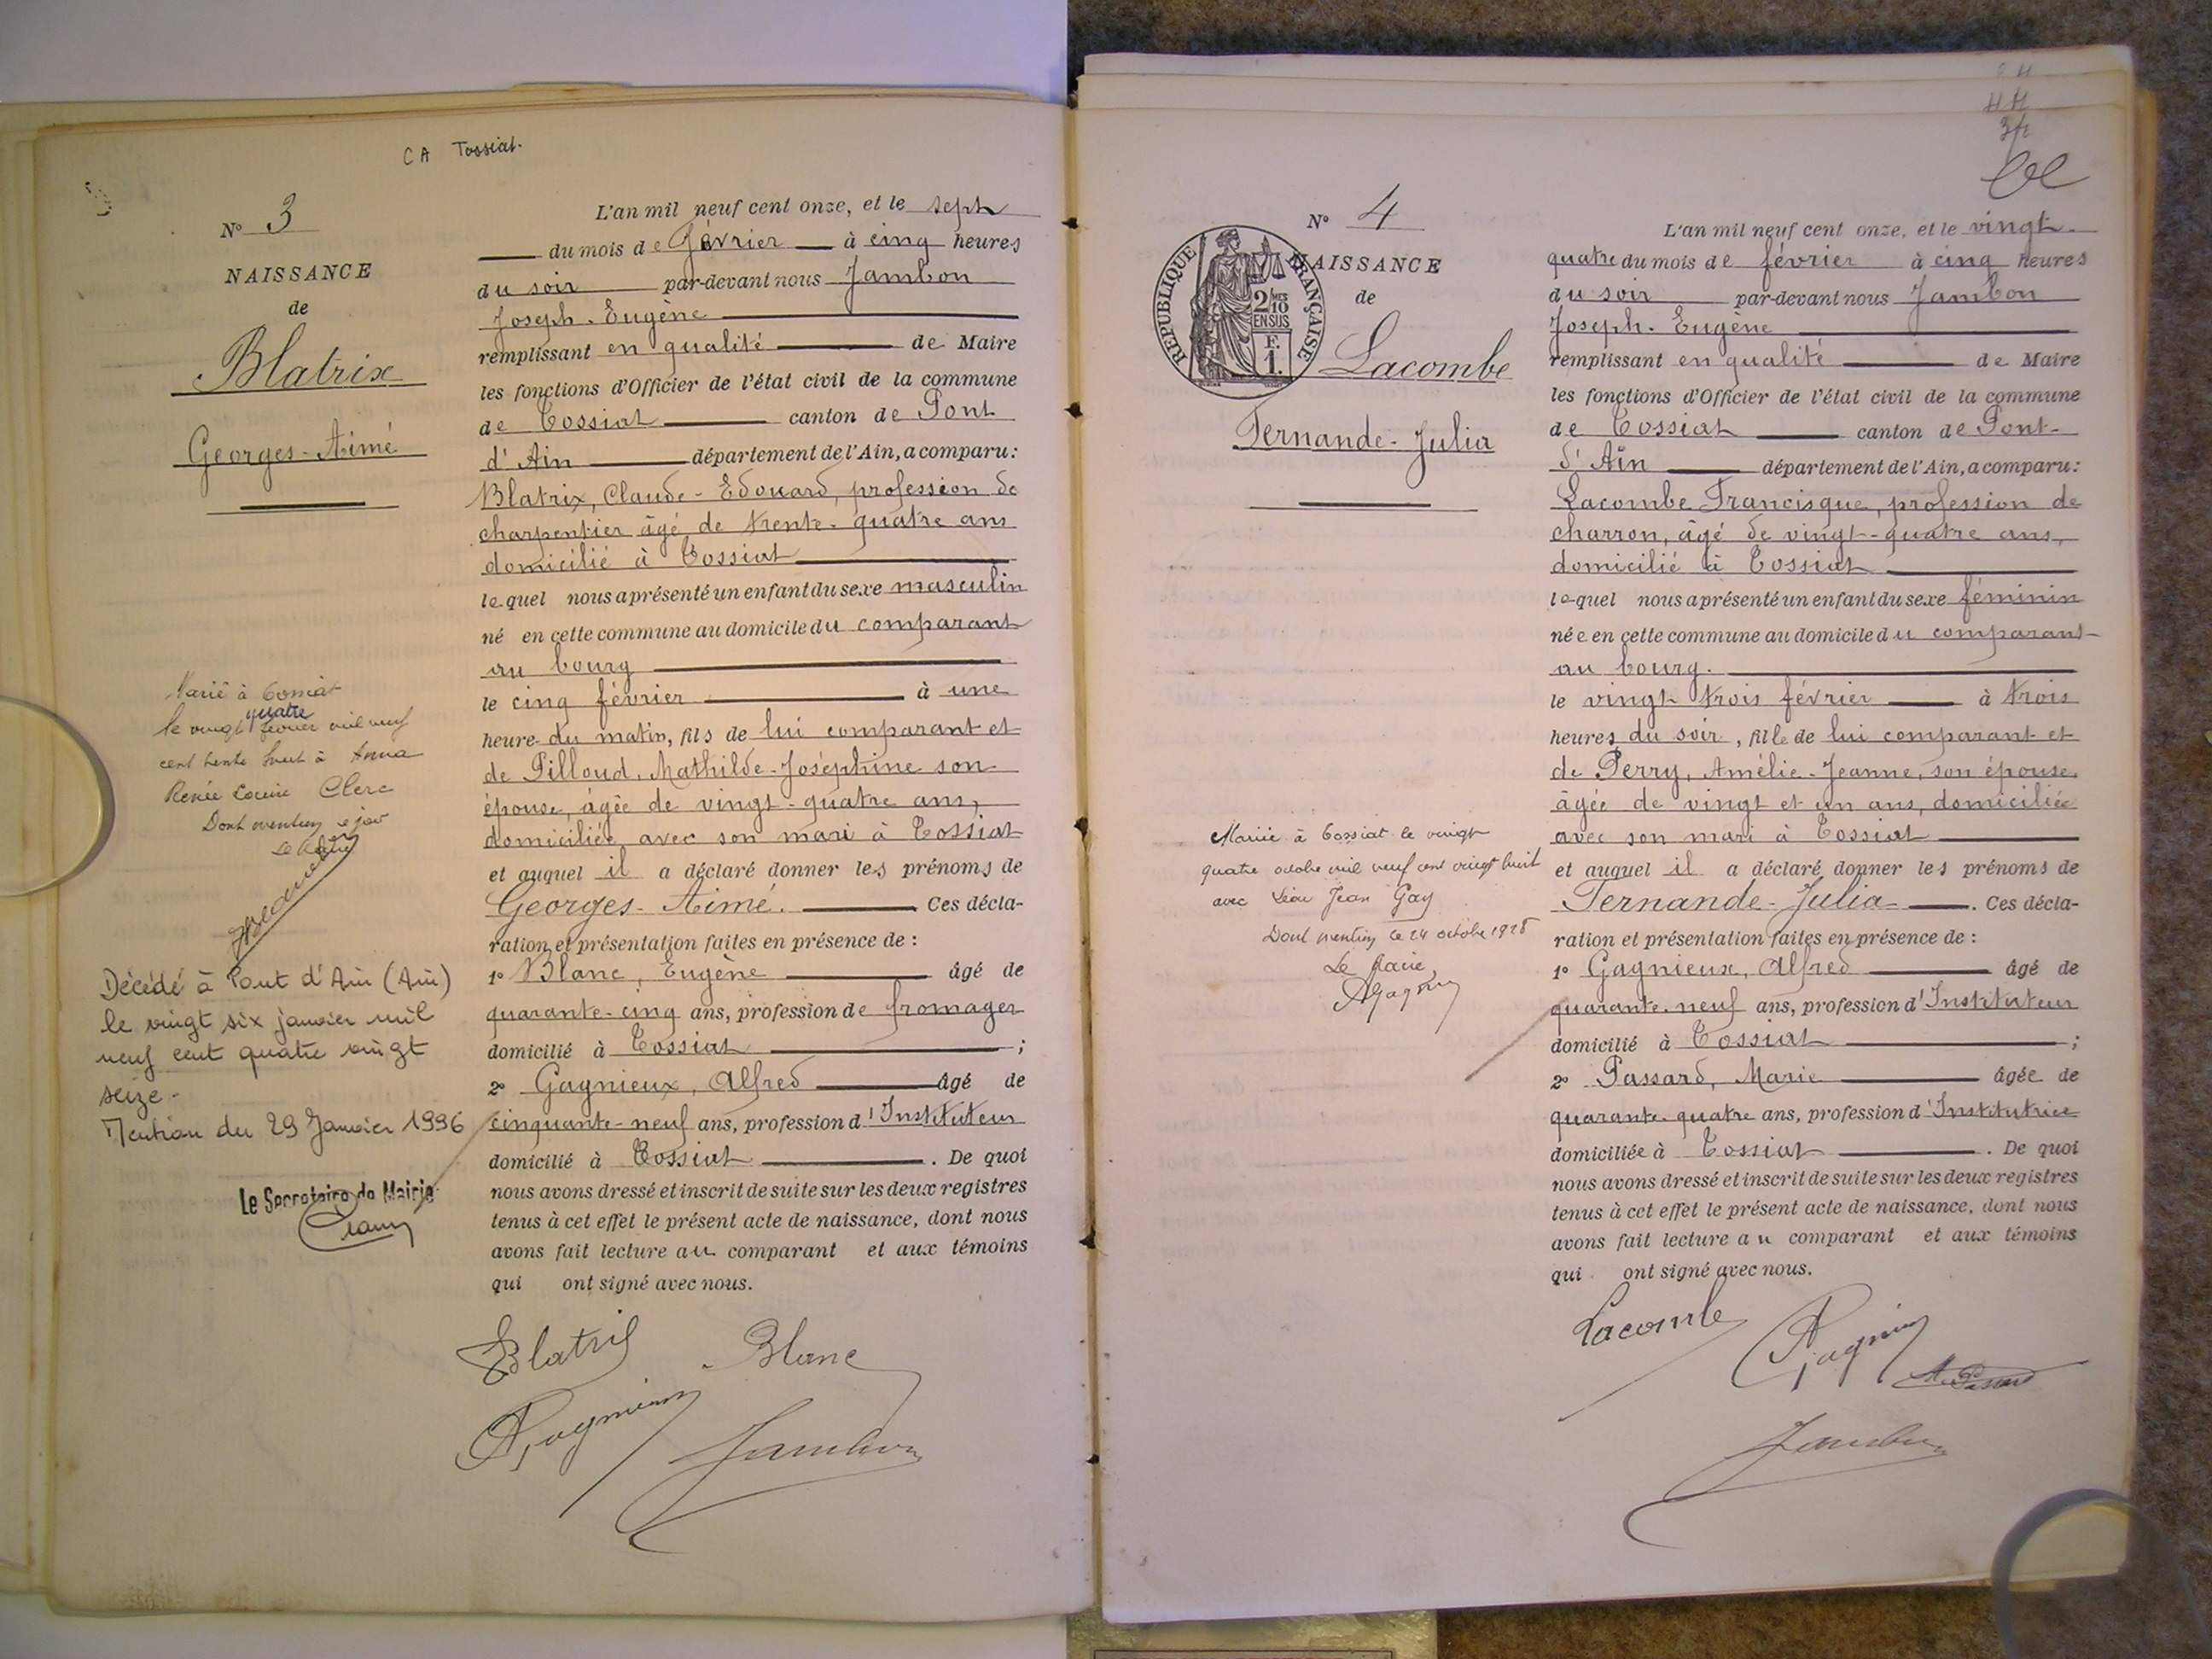 CA Tossiat.
N° 3
NAISSANCE
de
Blatrix
Georges-Aimé
Marié à Tossiat
quatre
le vingt février mil neuf
cent trente huit à Anna
Renée Louise Clerc
Dont mention ce jour
Le Maire
Décédé à Pont d'Ain (Ain)
le vingt six janvier mil
neuf cent quatre vingt
seize.
Mention du 29 Janvier 1996
Le Secrétaire de Mairie
L'an mil neuf cent onze, et le sept
du mois de Février à cinq heures
du soir par-devant nous Jambon
Joseph-Eugène
remplissant en qualité de Maire
les fonctions d'Officier de l'état civil de la commune
de Tossiat canton de Pont
d'Ain département de l'Ain, a comparu:
Blatrix, Claude-Edouard, profession de
charpentier âgé de trente-quatre ans
domicilié à Tossiat
lequel nous a présenté un enfant du sexe masculin
né en cette commune au domicile du comparant
au bourg
le cinq février à une
heure du matin, fils de lui comparant et
de Pilloud, Mathilde-Joséphine son
épouse, âgée de vingt-quatre ans,
domiciliée avec son mari à Tossiat
et auquel il a déclaré donner les prénoms de
Georges-Aimé. Ces décla-
ration et présentation faites en présence de :
1° Blanc, Eugène âgé de
quarante-cinq ans, profession de fromager
domicilié à Tossiat ;
2° Gagnieux, Alfred âgé de
cinquante-neuf ans, profession d'Instituteur
domicilié à Tossiat . De quoi
nous avons dressé et inscrit de suite sur les deux registres
tenus à cet effet le présent acte de naissance, dont nous
avons fait lecture au comparant et aux témoins
qui ont signé avec nous.
Blatrix Blanc
AGagnieux Jambon
N° 4
NAISSANCE
de
REPUBLIQUE FRANÇAISE
2/10
EN SUS
F.
1.
Lacombe
Fernande-Julia
Mariée à Tossiat le vingt
quatre octobre mil neuf cent vingt huit
avec Léon Jean Gay
Dont mention le 24 octobre 1928
Le Maire,
L'an mil neuf cent onze, et le vingt-
quatre du mois de février à cinq heures
du soir par-devant nous Jambon
Joseph-Eugène
remplissant en qualité de Maire
les fonctions d'Officier de l'état civil de la commune
de Tossiat canton de Pont-
d'Ain département de l'Ain, a comparu:
Lacombe Francisque, profession de
charron, âgé de vingt-quatre ans,
domicilié à Tossiat
lequel nous a présenté un enfant du sexe féminin
née en cette commune au domicile du comparant
au bourg.
le vingt trois février à trois
heures du soir, fille de lui comparant et
de Perry, Amélie-Jeanne, son épouse,
âgée de vingt et un ans, domiciliée
avec son mari à Tossiat
et auquel il a déclaré donner les prénoms de
Fernande-Julia . Ces décla-
ration et présentation faites en présence de :
1° Gagnieux, Alfred âgé de
quarante-neuf ans, profession d'Instituteur
domicilié à Tossiat ;
2° Passard, Marie âgée de
quarante-quatre ans, profession d'Institutrice
domiciliée à Tossiat . De quoi
nous avons dressé et inscrit de suite sur les deux registres
tenus à cet effet le présent acte de naissance, dont nous
avons fait lecture au comparant et aux témoins
qui ont signé avec nous.
Lacombe AGagnieux
M Passard
Jambon